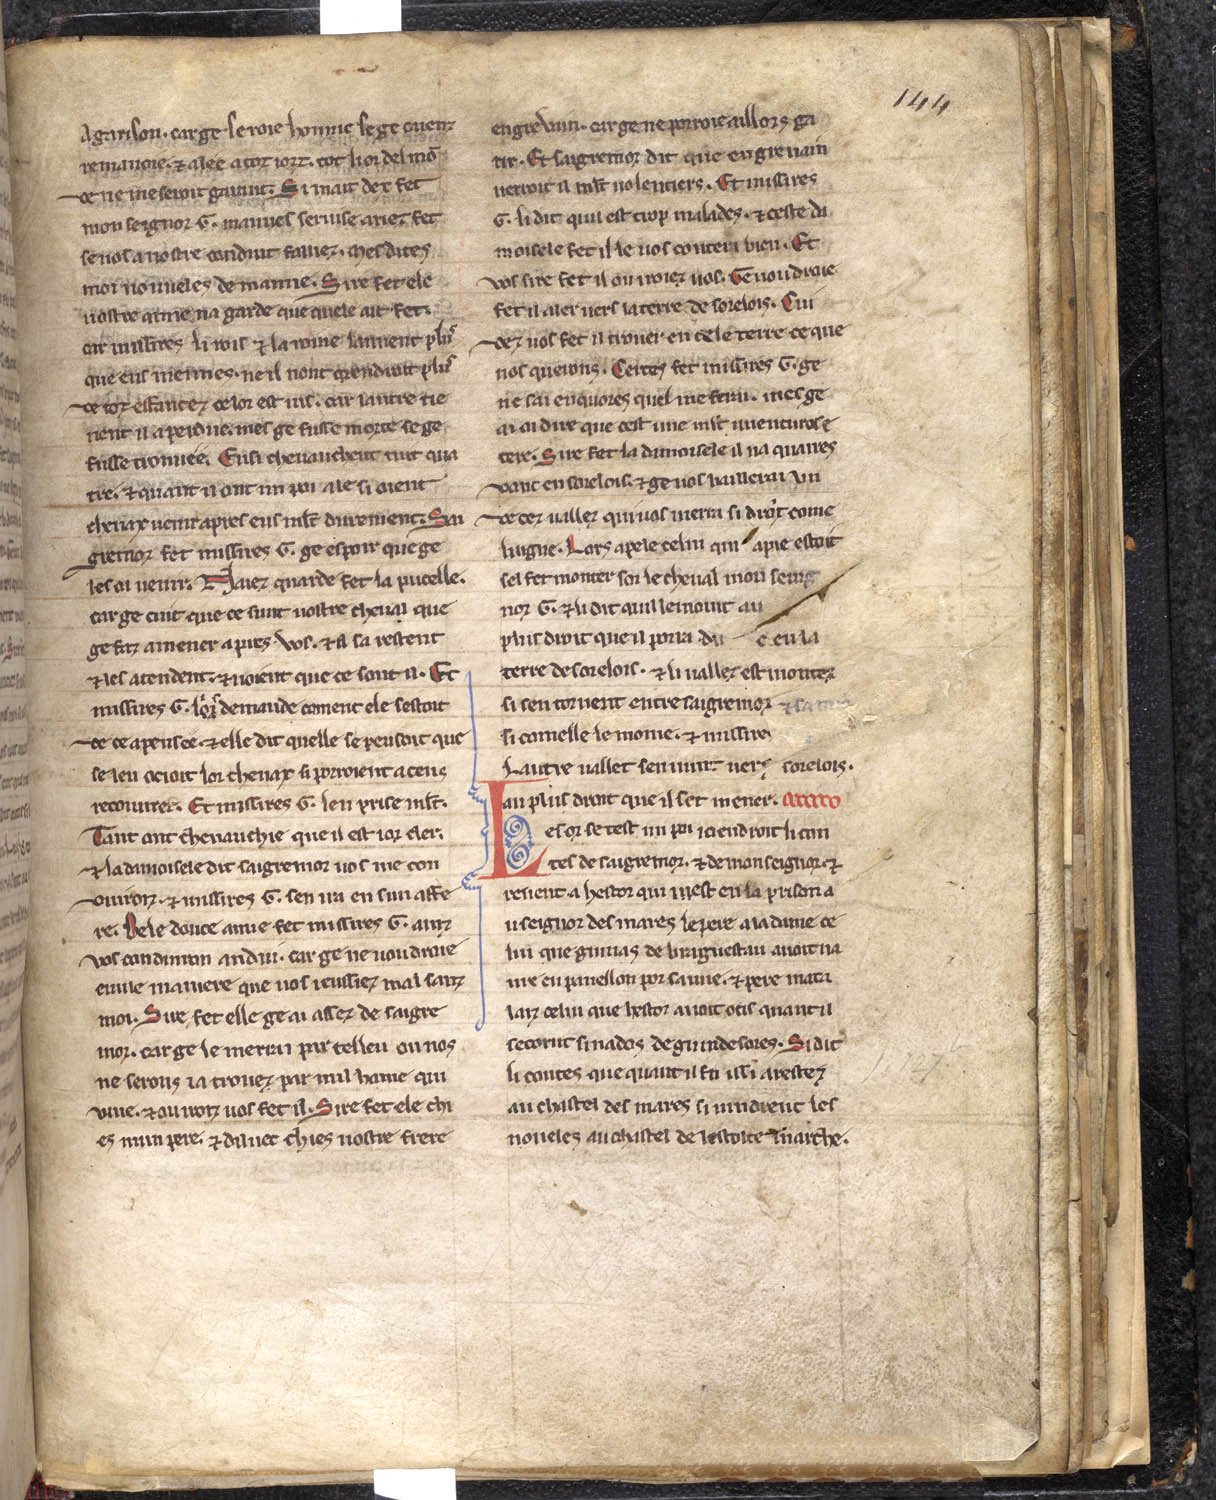 144
A garison. car ge seroie honnie se ge auenc
remanoie. & alee a toz iorz. tot li ors del mō
de ne me seroit garant. Si mait dex fet
mon seignor G. mauues seruise auez fet
se uos a nostre conduit failliez. mes dites
moi noueles de mamie. Sire fet ele
uostre amie na garde que ele ait fet.
car missires li rois & la roine lament plus
que eus meimes. ne il nont orendroit plus
de toz esfancez ce lor est uis. car lautre tie
nent il a perdue. mes ge fusse morte se ge
fusse trouuee. Ensi cheuauchent tuit qua
tre. & quant il ont un poi ale si oient
cheuax uenir apres eus mlt durement. Sai
gremor fet missires G. ge espoir que ge
les oi uenir. Naiez garde fet la pucelle.
car ge cuit que ce sunt uostre cheual que
ge faz amener apres uos. & il sa restent
& les atendent. & uoient que ce sont il. Et
missires G. lor demande coment ele sestoit
de ce apensee. & elle dit quelle se pensoit que
se len ocioit lor cheuax si porroient a ceus
recourrer. Et missires G. len prise mlt.
Tant ont cheuauchie que il est ior cler.
& la damoisele dit saigremor uos me con
duiroiz. & missires G. sen ira en sun affe
re. Bele douce amie fet missires G. autre
uos conduiron andui. car ge ne uoudroie
en nule maniere que uos eussiez mal sanz
moi. Sire fet elle ge ai assez de saigre
mor. car ge le merrai par tel leu ou nos
ne serons ia trouez par nul home qui
uiue. & ou iroiz uos fet il. Sire fet ele chi
es mun pere. & dilluec chies uostre frere
engreuain. car ge ne porroie aillors ga
rir. Et saigremor dit que engreuain
uerroit il mlt uolentiers. Et missires
G. li dit quil est trop malades. & ceste da
moisele fet il le uos contera bien. Et
uos sire fet il ou iroiez uos. Ge uoudroie
fet il aler uers la terre de sorelois. Cui
dez uos fet il trouer en cele terre ce que
nos querons. Certes fet missires G. ge
ne sai enquores quel me ferai. mes ge
ai oi dire que cest une mlt auenturose
tere. Sire fet la damoisele il na quaires
dont en sorelois. & ge uos baillerai un
de cez uallez qui uos merra si droit come
luigne. Lors apele celui qui apie estoit
sel fet monter sor le cheual mon seing
nor G. & li dit quil le moint au
plus droit que il porra du e en la
terre de sorelois. & li uallez est montez
si sen tornent entre saigremor & sa
si comelle le moine. & missire
Lautre uallet sen uunt uers sorelois.
au plus droit que il set mener.
Les or se test un poi ici endroit li con
tes de saigremor. & de mon seignor. &
reuient a hestor qui mest en la prison a
u seignor des mares le pere a la dame ce
lui que guinas de briguestau auoit na
ure en pauellon por samie. & pere mata
laiz celui que hestor auoit ocis quant il
secorut sinados de guindesores. Si dit
li contes que quant il fu issi arestez
au chastel des mares si uindrent les
noueles au chastel de lestoite marche.